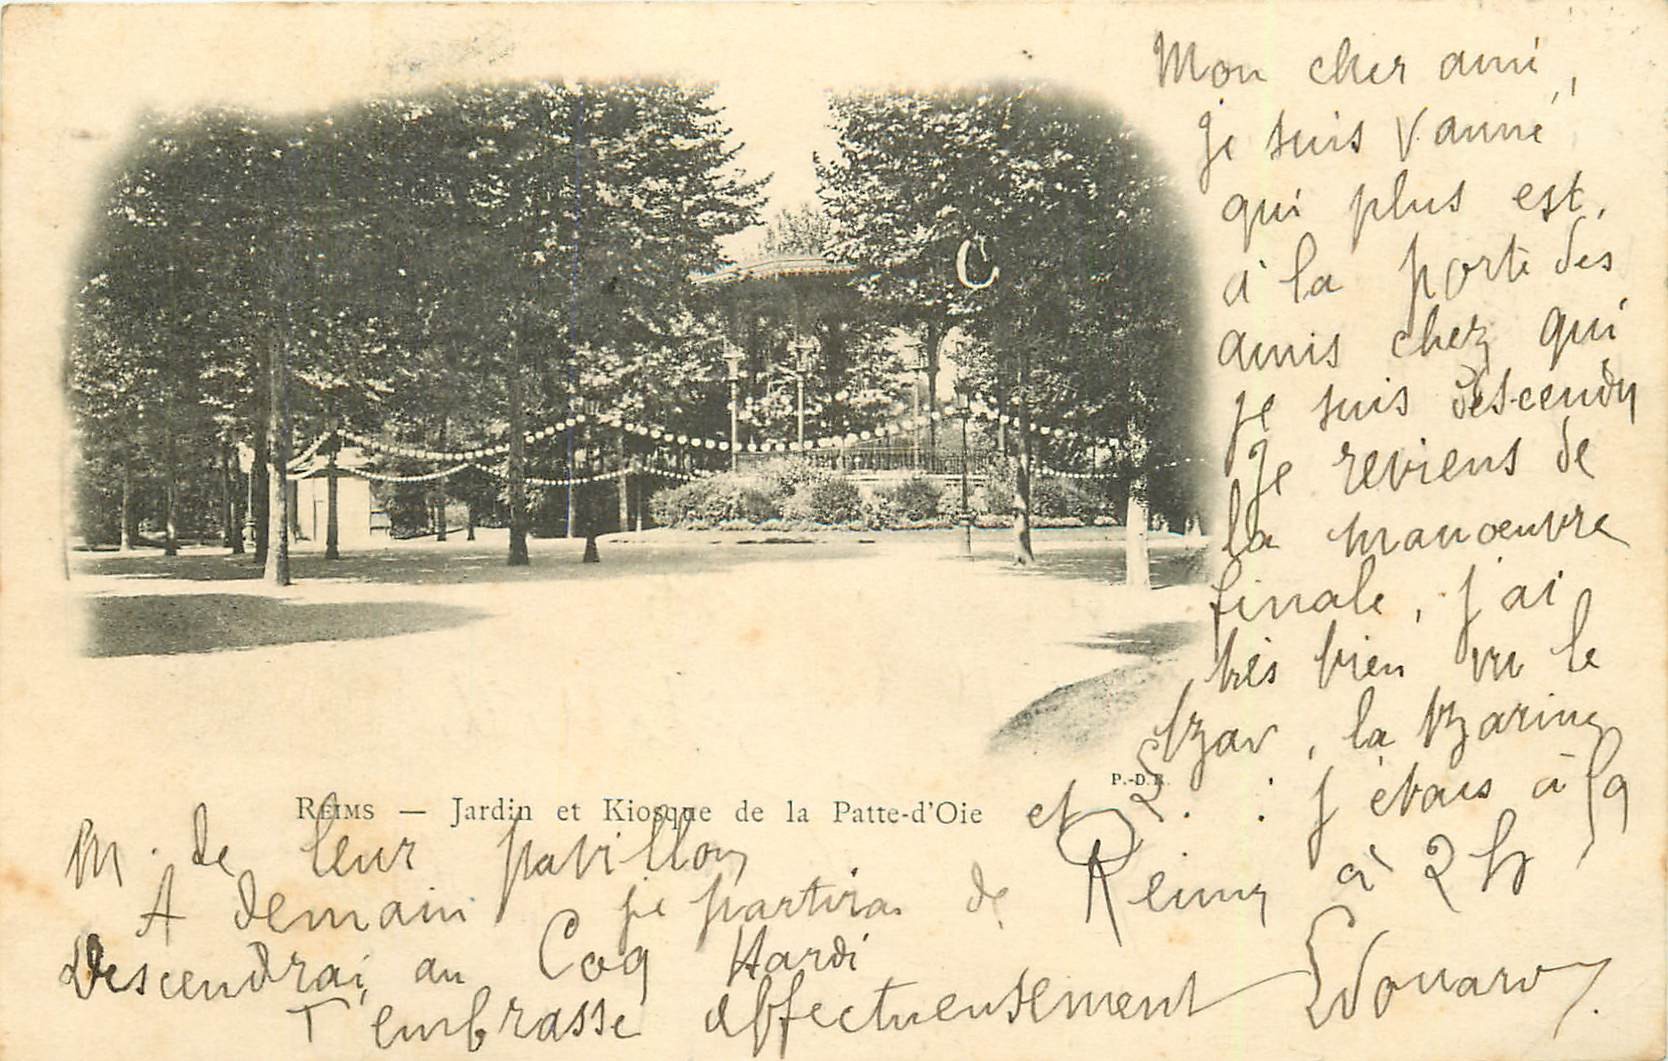 Mon cher ami,
je suis vanné
qui plus est,
à la porte des
amis chez qui
je suis descendu
Je reviens de
la manoeuvre
finale, j'ai
très bien vu le
tzar, la tzarine
et : j'étais à
C
P.-D.R.
REIMS — Jardin et Kiosque de la Patte-d'Oie
m. de leur pavillon
A demain je partirai de Reims à 2 h
Descendrai au Coq Hardi
T'embrasse affectueusement Edouard